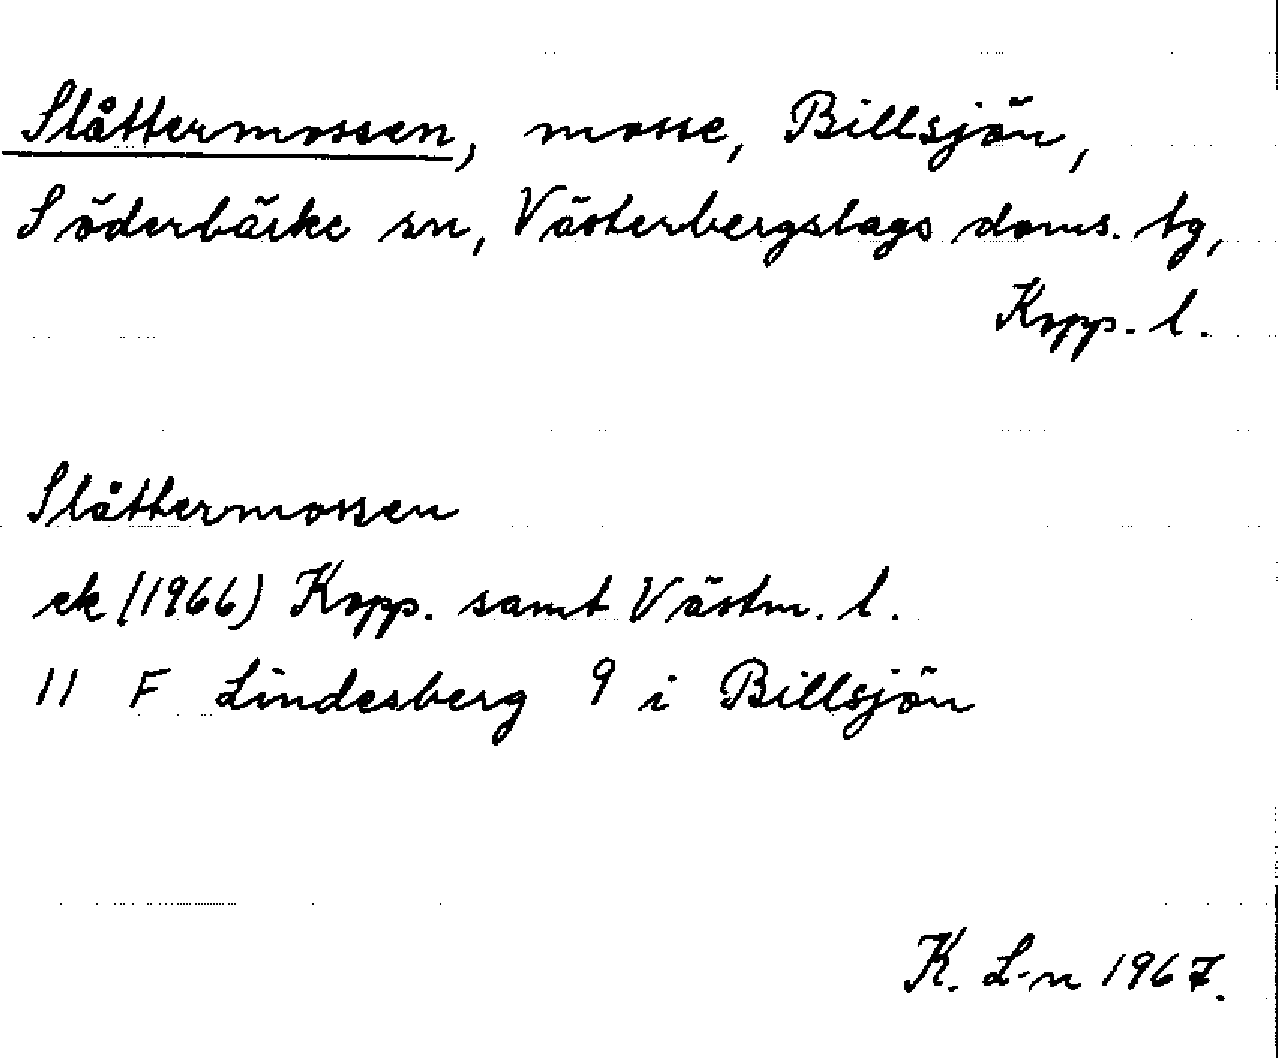 Slåttermossen, mosse, Billsjön,
Söderbärke sn, Västerbergslags doms. tg,
Kopp. l.
Slåttermossen
ek (1966) Kopp. samt Västm. l.
11 F Lindesberg 9 i Billsjön
K. L-n 1967.